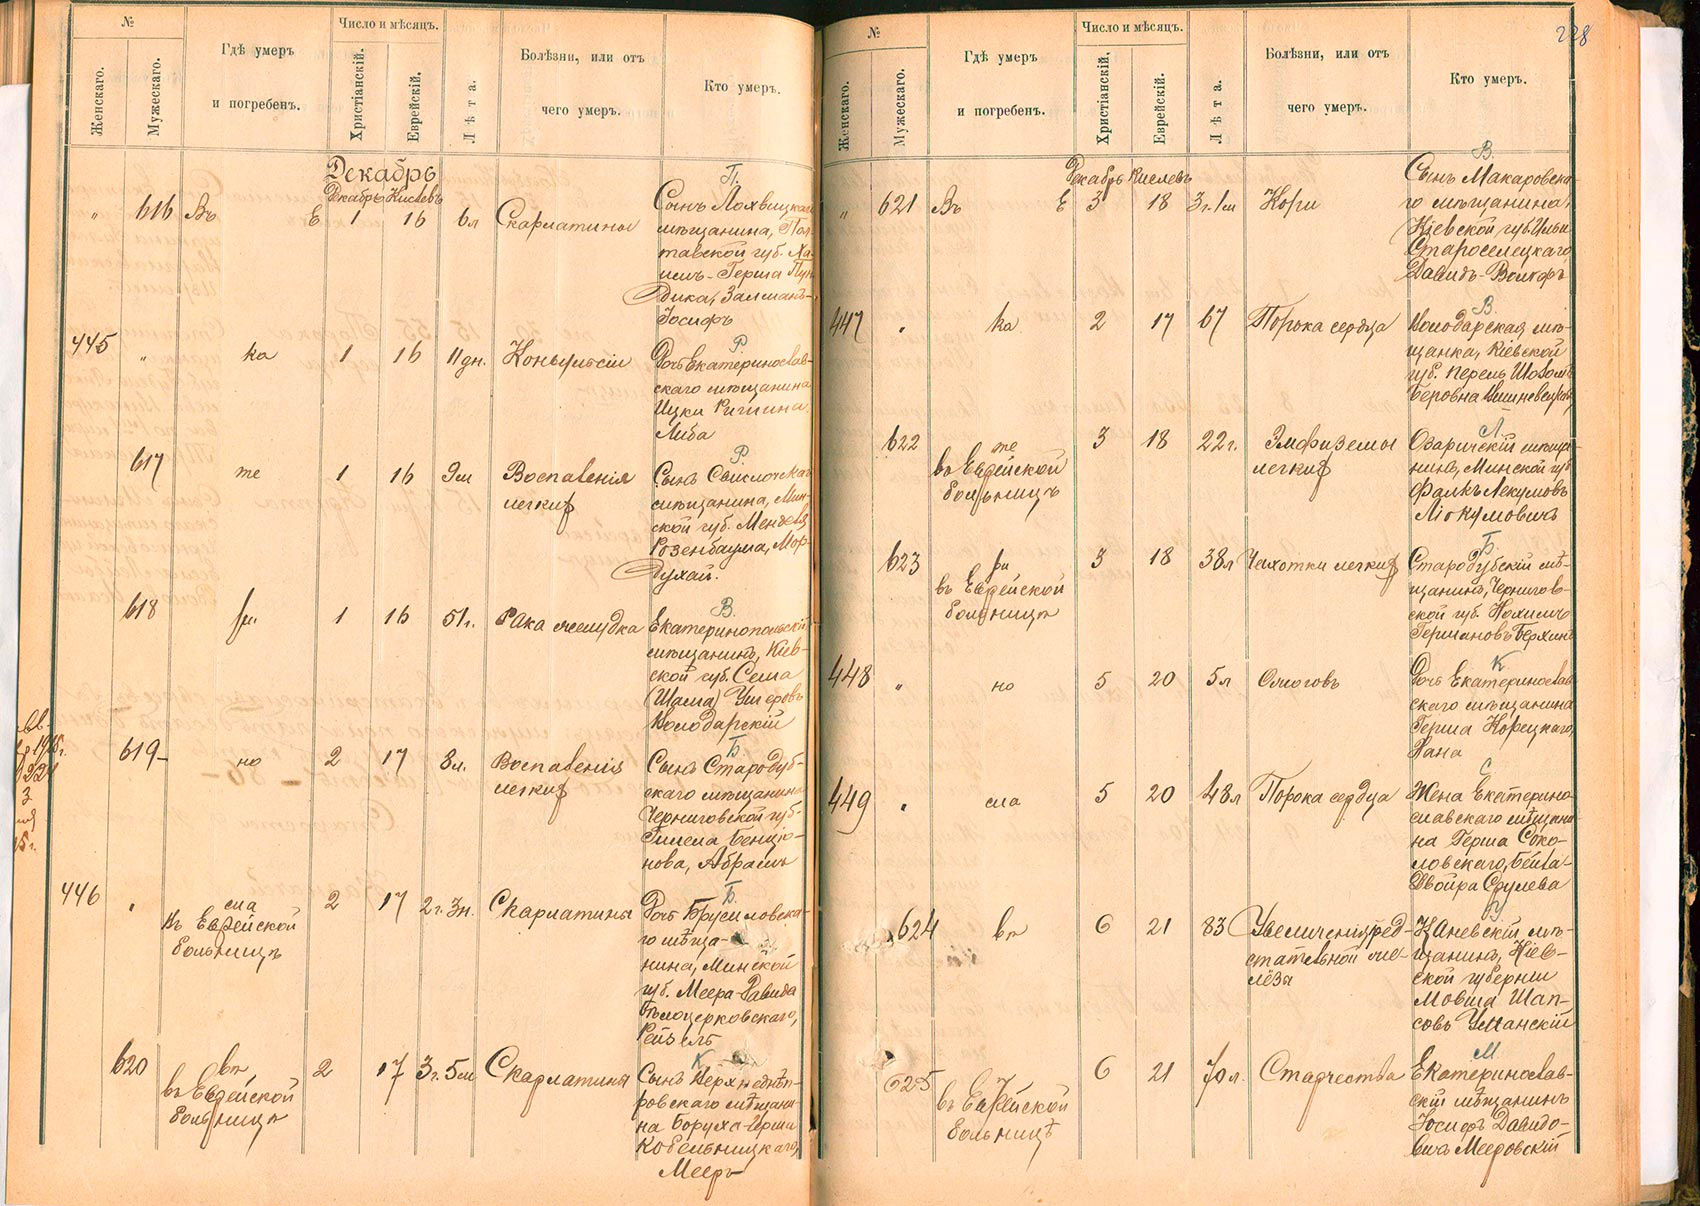 №
Число и мѣсяцъ.
Женскаго.
Мужескаго.
Гдѣ умеръ
и погребенъ.
Христіанскій.
Еврейскій.
Лѣта.
Болѣзни, или отъ
чего умеръ.
Кто умеръ.
Декабрь
Декабрь Кислевъ
" 616 Въ Е 1 16 6л Скарлатины
П.
Сынъ Лохвицкаго
мѣщанина, Пол-
тавской губ. Ха-
имъ-Герша Пун-
дика, Залманъ-
Іосифъ
445 " ка 1 16 11дн. Конвульсіи
Р
Дочь Екатеринослав-
скаго мѣщанина
Ицки
Либа
617 те 1 16 9м Воспаленія
легкихъ
Р
Сынъ Свислочскаго
мѣщанина, Мин-
ской губ. Менделя
Розенбаума, Мор-
духай.
618 1 16 51г. Рака желудка
В.
Екатеринопольскій
мѣщанинъ, Кіев-
ской губ. Сема
(Шама) Ушеровъ
Володарскій
619 но 2 17 8л. Воспаленія
легкихъ
Б
Сынъ Стародуб-
скаго мѣщанина
Черниговской губ.
Гилела Бенціо-
нова, Абрамъ
446 " сла
въ Еврейской
больницѣ
2 17 2г. 3н. Скарлатины
Б.
Дочь Брусиловска-
го мѣща-
нина, Минской
губ. Меера-Давида
Бѣлоцерковскаго,
Рейзелъ
620 вѣ
въ Еврейской
больницѣ
2 17 3г. 5м Скарлатины
К
Сынъ Верхнеднѣп-
ровскаго мѣщани-
на Боруха-Ирши
Кобельницкаго,
Мееръ
№
Число и мѣсяцъ.
Женскаго.
Мужескаго.
Гдѣ умеръ
и погребенъ.
Христіанскій.
Еврейскій.
Лѣта.
Болѣзни, или отъ
чего умеръ.
Кто умеръ.
228
Декабрь Кислевъ
" 621 Въ Е 3 18 3г. 1м Кори
В.
Сынъ Макаровска-
го мѣщанина,
Кіевской губ.
Староселецкаго
Давидъ-Волфъ
447 " ка 2 17 67 Порока сердца
В.
Володарская мѣ-
щанка, Кіевской
губ. Перель Шолом-
Беровна Вишневецкая
622 те
въ Еврейской
больницѣ
3 18 22г. Эмфиземы
легкихъ
Л
Озаричскій мѣща-
нинъ, Минской губ.
Фалкъ Лекумовъ
Лі
623 ри
въ Еврейской
больницѣ
3 18 38л Чахотки легкихъ
Б
Стародубскій мѣ-
щанинъ, Чернигов-
ской губ. Нохимъ
Германовъ Берхинъ
448 " но 5 20 5л Ожоговъ
К
Дочь Екатеринослав-
скаго мѣщанина
Герша Корецкаго,
Хана
449 " сла 5 20 48л Порока сердца
С
Жена Екатерино-
славскаго мѣщани-
на Герша Соко-
ловскаго, Бейла-
Двойра Срулева
624 вѣ 6 21 83 Увеличенія пред-
стательной же-
лёзы
У
Каневскій мѣ-
щанинъ, Кіев-
ской губерніи
Мовша Шап-
совъ Уманскій
625 въ Еврейской
больницѣ
6 21 70л. Старчества
М
Екатеринослав-
скій мѣщанинъ
Іосифъ Давидо-
вичъ Мееровскій